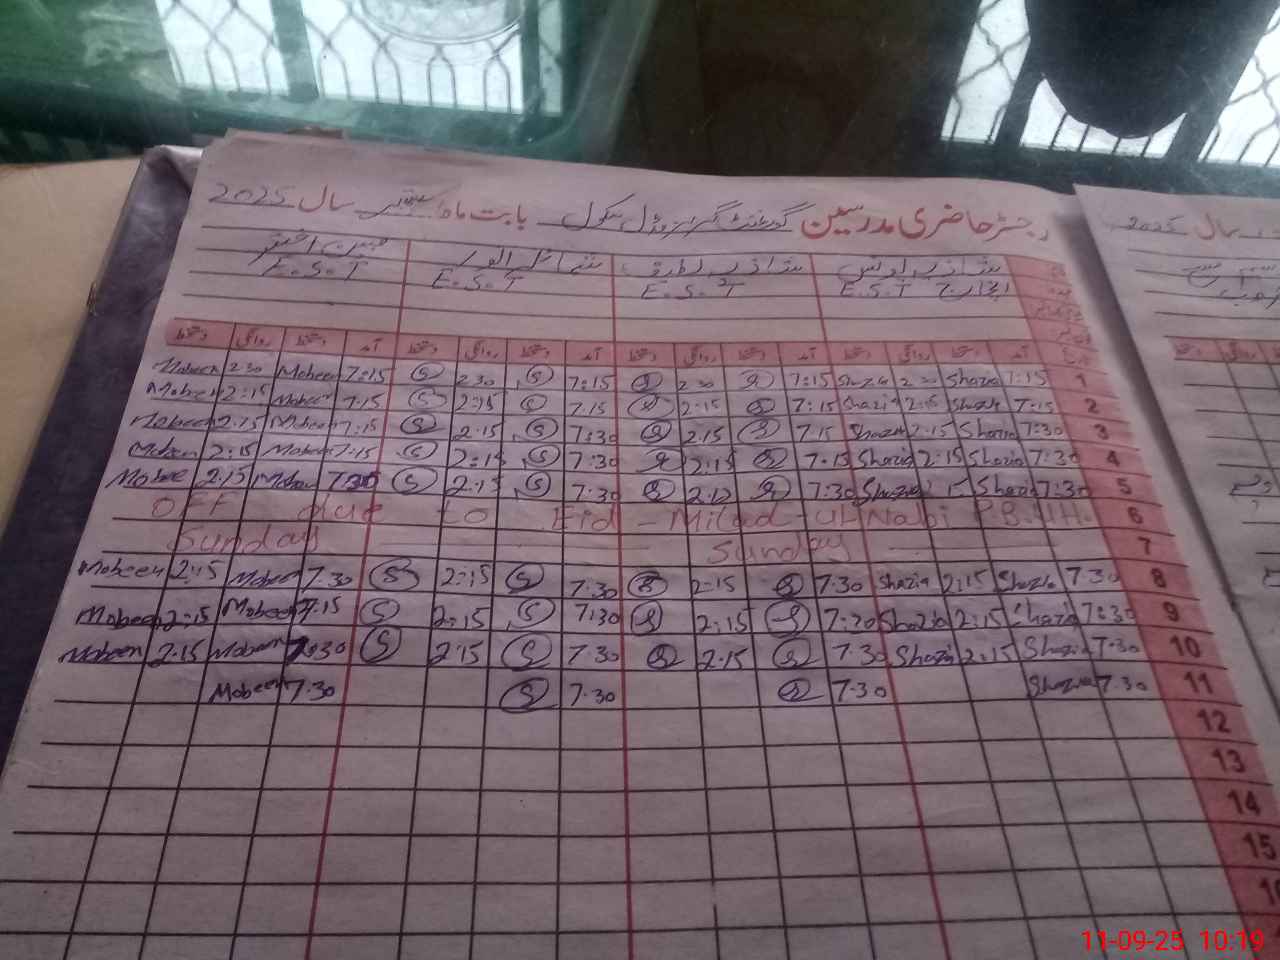 رجسٹر حاضری مدرسین گورنمنٹ گرلز مڈل سکول بابت ماہ ستمبر سال 2025
شازیہ یونس شازیہ طارق شمائل انور مبین اختر
انچارج E.S.T E.S.T E.S.T E.S.T
آمد دستخط روانگی دستخط آمد دستخط روانگی دستخط آمد دستخط روانگی دستخط آمد دستخط روانگی دستخط
Mobeen 2:30 Mobeen 7:15 S 2:30 S 7:15 2:30 7:15 Shazia 2:30 Shazia 7:15 1
Mobeen 2:15 Mobeen 7:15 S 2:15 S 7:15 2:15 7:15 Shazia 2:15 Shazia 7:15 2
Mobeen 2:15 Mobeen 7:15 S 2:15 S 7:30 2:15 7:15 Shazia 2:15 Shazia 7:30 3
Mobeen 2:15 Mobeen 7:15 S 2:15 S 7:30 2:15 7:15 Shazia 2:15 Shazia 7:30 4
Mobee 2:15 7:30 S 2:15 S 7:30 2:15 7:30 Shazia 15 Shazia 7:30 5
OFF due to Eid-Milad-ul Nabi P.B.U.H. 6
Sunday Sunday 7
Mobeen 2:15 Mobeen 7:30 S 2:15 S 7:30 2:15 7:30 Shazia 2:15 Shazia 7:30 8
Mobeen 2:15 Mobeen 7:15 S 2:15 S 7:30 2:15 7:30 Shazia 2:15 Shazia 7:30 9
Mobeen 2:15 Mobeen 7:30 S 2:15 S 7:30 2:15 7:30 Shazia 2:15 Shazia 7:30 10
Mobeen 7:30 S 7:30 7:30 Shazia 7:30 11
12
13
14
15
سال 2025
11-09-25 10:19